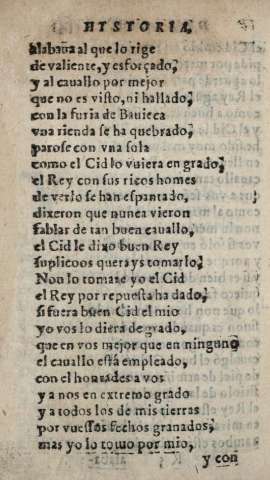 HYSTORIA,
alabaua al que lo rige
de valiente, y esforçado,
y al cauallo por mejor
que no es visto, ni hallado,
con la furia de Bauieca
vna rienda se ha quebrado,
parose con vna sola
como el Cid lo vuiera en grado,
el Rey con sus ricos homes
de verlo se han espantado,
dixeron que nunca vieron
fablar de tan buen cauallo,
el Cid le dixo buen Rey
suplicoos querays tomarlo,
Non lo tomare yo el Cid
el Rey por repuesta ha dado,
si fuera buen Cid el mio
yo vos lo diera de grado,
que en vos mejor que en ninguno
el cauallo está empleado,
con el honrades a vos
y a nos en extremo grado
y a todos los de mis tierras
por vuessos fechos granados,
mas yo lo tomo por mio,
y con